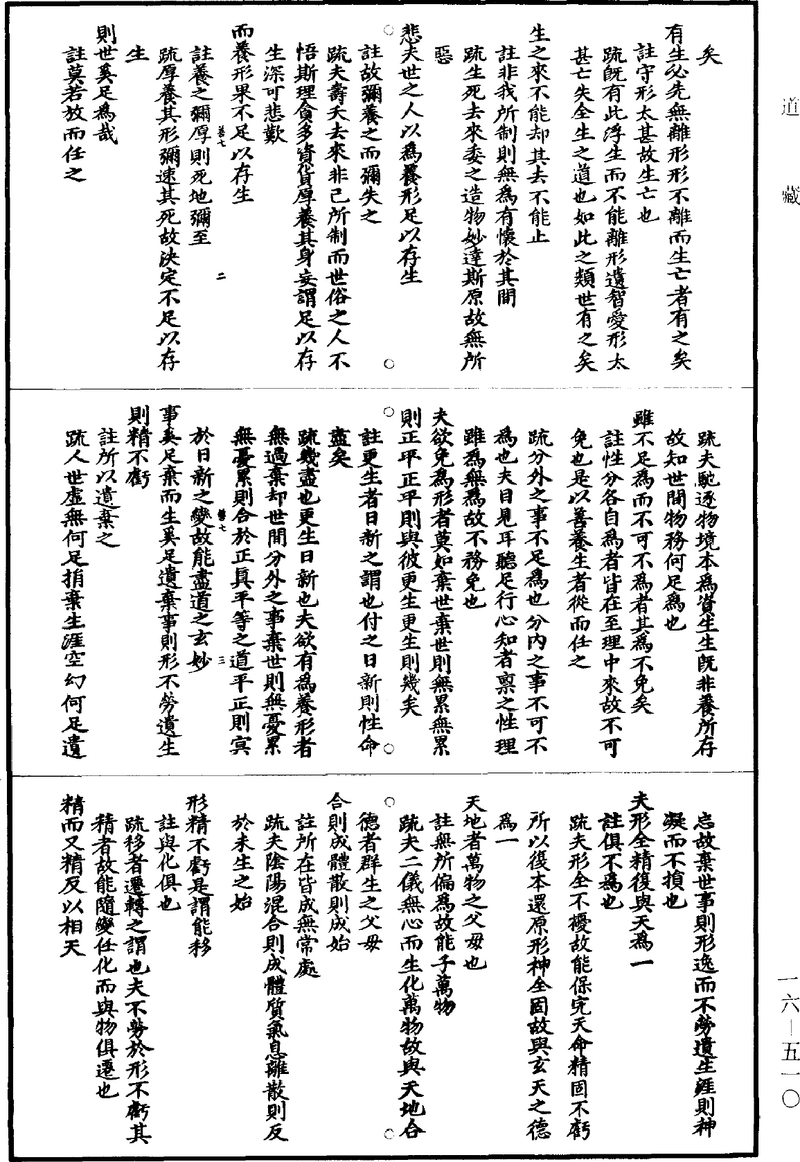 道藏
矣
有生必先無離形形不離而生亡者有之矣
註守形太甚故生亡也
疏旣有此浮生而不能離形遺智愛形太
甚亡失全生之道也如此之類世有之矣
生之來不能却其去不能止
註非我所制則無為有懷於其間
疏生死去來委之造物妙達斯原故無所
惡
悲夫世之人以為養形足以存生
註故彌養之而彌失之
疏夫壽夭去來非己所制而世俗之人不
悟斯理貪多資貨厚養其身妄謂足以存
生深可悲歎
而養形果不足以存生
註養之彌厚則死地彌至
疏厚養其形彌速其死故決定不足以存
生
則世奚足為哉
註莫若放而任之
卷七
二
疏夫馳逐物境本為資生生旣非養所存
故知世間物務何足為也
雖不足為而不可不為者其為不免矣
註性分各自為者皆在至理中來故不可
免也是以善養生者從而任之
疏分外之事不足為也分内之事不可不
為也夫目見耳聽足行心知者禀之性理
雖為無為故不務免也
夫欲免為形者莫如棄世棄世則無累無累
則正平正平則與彼更生更生則幾矣
註更生者日新之謂也付之日新則性命
盡矣
疏幾盡也更生日新也夫欲有為養形者
無過棄却世間分外之事棄世則無憂累
無憂累則合於正真平等之道平正則冥
於日新之變故能盡道之玄妙
事奚足棄而生奚足遺棄事則形不勞遺生
則精不虧
註所以遺棄之
疏人世虛無何足捐棄生涯空幻何足遺
卷七
三
忘故棄世事則形逸而不勞遺生涯則神
凝而不損也
夫形全精復與天為一
註俱不為也
疏夫形全不擾故能保完天命精固不虧
所以復本還原形神全固故與玄天之德
為一
天地者萬物之父母也
註無所偏為故能子萬物
疏夫二儀無心而生化萬物故與天地合
德者群生之父母
合則成體散則成始
註所在皆成無常處
疏夫陰陽混合則成體質氣息離散則反
於未生之始
形精不虧是謂能移
註與化俱也
疏移者遷轉之謂也夫不勞於形不虧其
精者故能隨變任化而與物俱遷也
精而又精反以相天
一六—五一〇